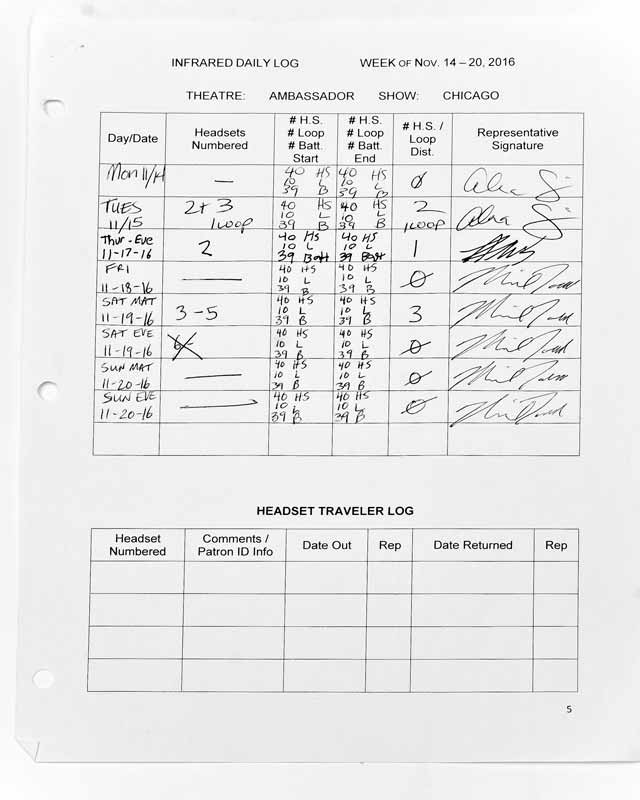 INFRARED DAILY LOG WEEK OF NOV. 14 – 20, 2016
THEATRE: AMBASSADOR SHOW: CHICAGO
Day/Date Headsets Numbered # H.S. # Loop # Batt. Start # H.S. # Loop # Batt. End # H.S. / Loop Dist. Representative Signature
Mon 11/14 — 40 HS 10 L 39 B 40 HS 10 L 39 B Ø
TUES 11/15 2+3 1 LOOP 40 HS 10 L 39 B 40 HS 10 L 39 B 2 1 LOOP
Thur-Eve 11-17-16 2 40 HS 10 L 39 Batt 40 HS 10 L 39 Batt 1
FRI 11-18-16 — 40 HS 10 L 39 B 40 HS 10 L 39 B Ø
SAT MAT 11-19-16 3-5 40 HS 10 L 39 B 40 HS 10 L 39 B 3
SAT EVE 11-19-16 40 HS 10 L 39 B 40 HS 10 L 39 B Ø
SUN MAT 11-20-16 — 40 HS 10 L 39 B 40 HS 10 L 39 B Ø
SUN EVE 11-20-16 — 40 HS 10 L 39 B 40 HS 10 L 39 B Ø
HEADSET TRAVELER LOG
Headset Numbered Comments / Patron ID Info Date Out Rep Date Returned Rep
5